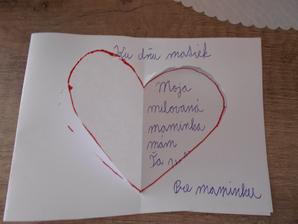 Ku dňu matiek
Moja
milovaná
maminka
mám
Ťa
Pre maminku